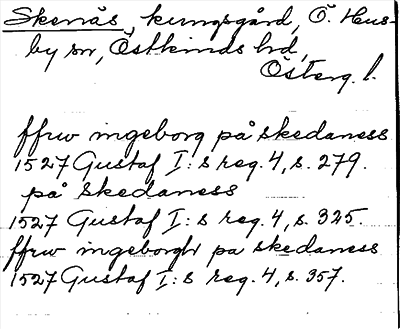 Skenäs, kungsgård, Ö. Hus-
by sn, Östkinds hd,
Österg. l.
ffrw ingeborg på skedaness
1527 Gustaf I:s reg. 4, s. 279.
på skedaness
1527 Gustaf I:s reg. 4, s. 325.
ffrw ingeborgh pa skedaness
1527 Gustaf I:s reg. 4, s. 357.